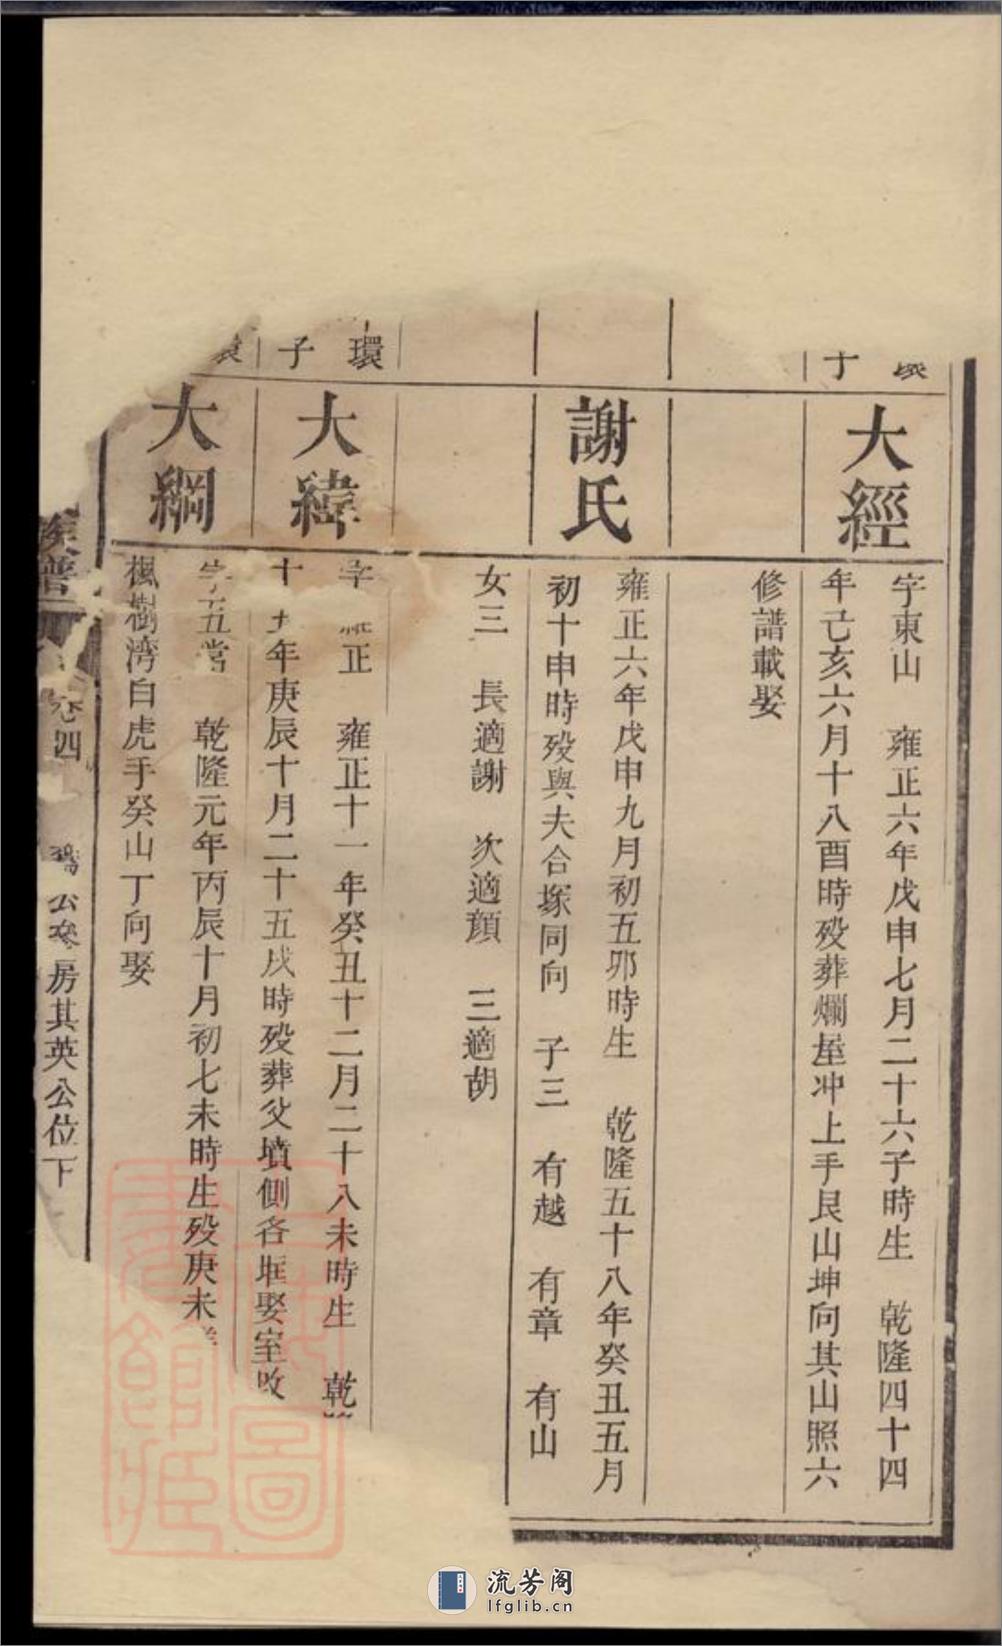 大經
字東山 雍正六年戊申七月二十六子時生 乾隆四十四
年己亥六月十八酉時歿葬爛屋冲上手艮山坤向其山照六
修譜載娶
謝氏
雍正六年戊申九月初五卯時生 乾隆五十八年癸丑五月
初十申時歿與夫合塚同向 子三 有越 有章 有山
女三 長適謝 次適顔 三適胡
環
子
大緯
字 正 雍正十一年癸丑十二月二十八未時生 乾
年庚辰十月二十五戌時歿葬父墳側各堆娶室改
大綱
字五常 乾隆元年丙辰十月初七未時生歿庚未
楓樹湾白虎手癸山丁向娶
族譜
卷四
公叅房其英公位下
流芳阁
lfglib.cn